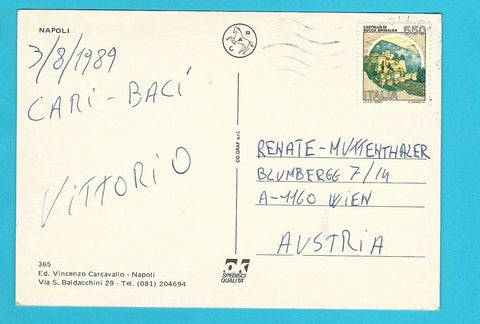 NAPOLI
3/8/1989
CARI - BACI
VITTORIO
365
Ed. Vincenzo Carcavallo - Napoli
Via S. Baldacchini 29 - Tel. (081) 204694
CO.GRAF s.r.l.
OK
SPEDISCI
QUALITA'
CASTELLO DI
ROCCA SINIBALDA
550
ITALIA
RENATE - MUTTENTHALER
BLUMBERGG 7/14
A-1160 WIEN
AUSTRIA